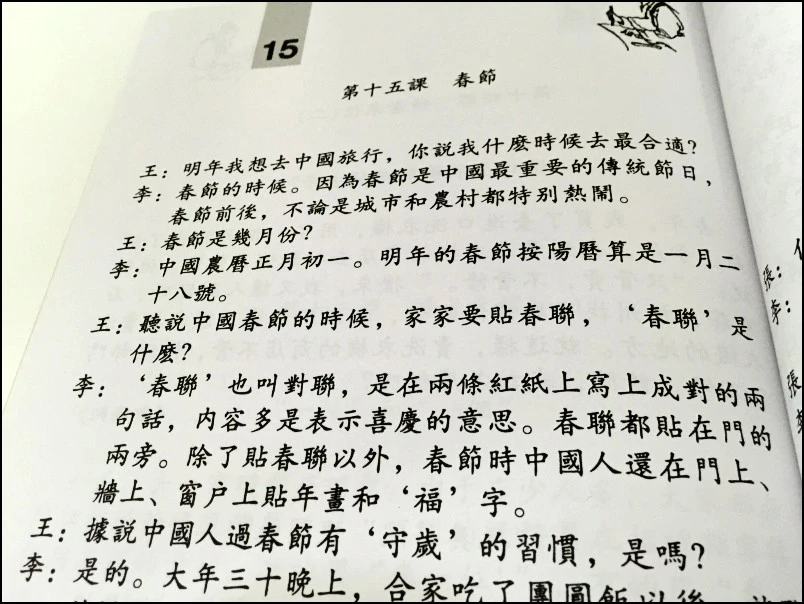 15
第十五課 春節
王：明年我想去中國旅行，你說我什麼時候去最合適？
李：春節的時候。因為春節是中國最重要的傳統節日，
春節前後，不論是城市和農村都特別熱鬧。
王：春節是幾月份？
李：中國農曆正月初一。明年的春節按陽曆算是一月二
十八號。
王：聽說中國春節的時候，家家要貼春聯，‘春聯’是
什麼？
李：‘春聯’也叫對聯，是在兩條紅紙上寫上成對的兩
句話，内容多是表示喜慶的意思。春聯都貼在門的
兩旁。除了貼春聯以外，春節時中國人還在門上、
牆上、窗户上貼年畫和‘福’字。
王：據說中國人過春節有‘守歲’的習慣，是嗎？
李：是的。大年三十晚上，合家吃了團圓飯以後，
張：
李：
張